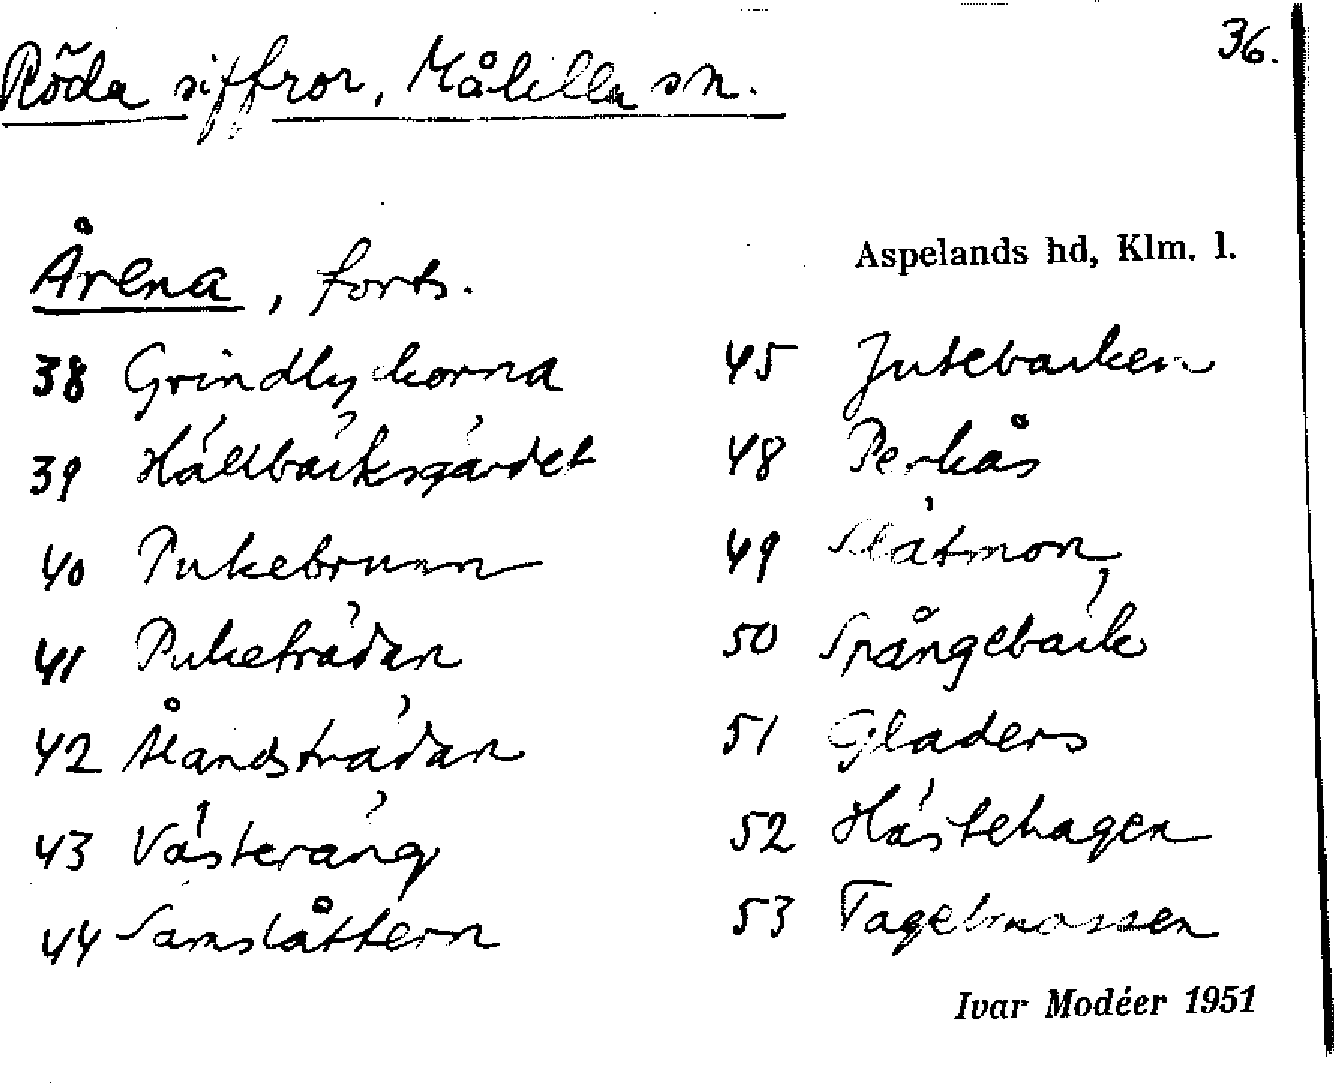 36.
Röda siffror, Målilla sn.
Aspelands hd, Klm. l.
Årena, forts.
38 Grindlyckorna
39 Hällbäcksgärdet
40 Pukebrunn
41 Puketrädan
42 Ålandsträdan
43 Västeräng
44 Samslåttern
45 Jutebacken
48 Perkås
49 Slätmon
50 Spångebäck
51 Gladers
52 Hästehagen
53 Tagelmossen
Ivar Modéer 1951